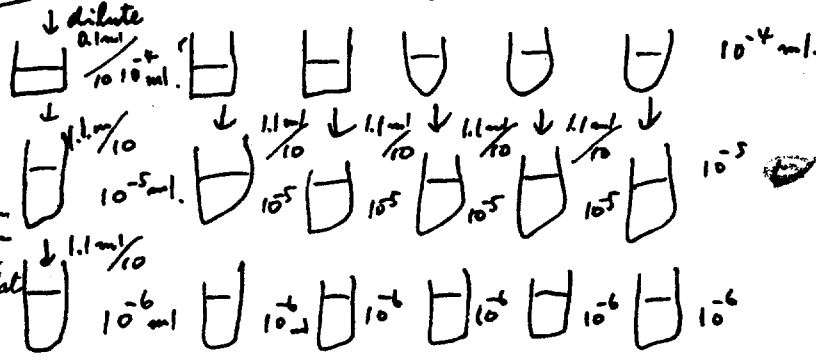 ↓ dilute
0.1ml/10 10⁻⁴ ml. 10⁻⁴ ml.
1.1ml/10 1.1ml/10 1.1ml/10 1.1ml/10 1.1ml/10
10⁻⁵ ml. 10⁻⁵ 10⁻⁵ 10⁻⁵ 10⁻⁵ 10⁻⁵
↓ 1.1ml/10
10⁻⁶ ml 10⁻⁶ ml 10⁻⁶ 10⁻⁶ 10⁻⁶ 10⁻⁶